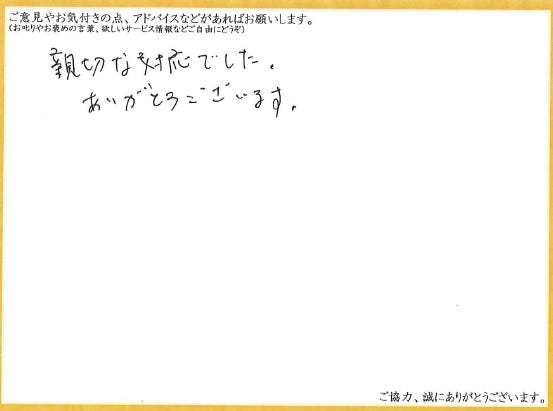 ご意見やお気付きの点、アドバイスなどがあればお願いします。
(お叱りやお褒めの言葉、欲しいサービス情報などご自由にどうぞ)
親切な対応でした。
ありがとうございます。
ご協力、誠にありがとうございます。